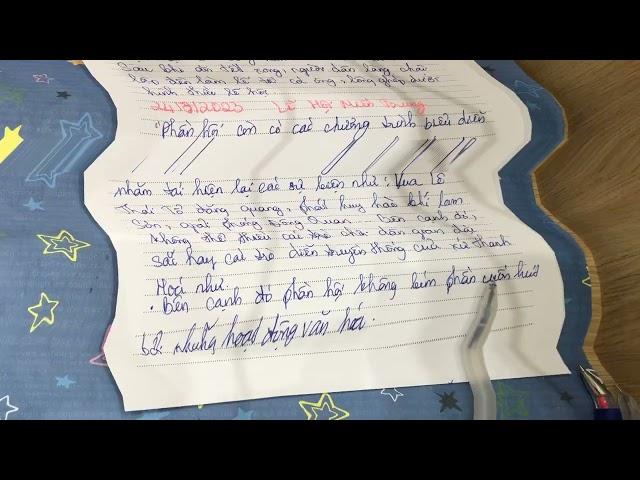 Sau khi dời tết xong, người dân làng chài
lập đền làm lễ tế cá ông, lồng ghép dưới
hình thức lễ hội
24/3/2023 Lễ Hội Miền Trung
"Phần hội" còn có các chương trình biểu diễn
nhằm tái hiện lại các sự kiện như: Vua Lê
Thái Tổ đăng quang, phát huy hào khí Lam
Sơn, giải phóng Đông Quan. Bên cạnh đó,
không thể thiếu các trò chơi dân gian đặc
sắc hay các trò diễn truyền thống của xứ Thanh
Hoá như
. Bên cạnh đó phần hội không kém phần cuốn hút
bởi những hoạt động văn hoá.